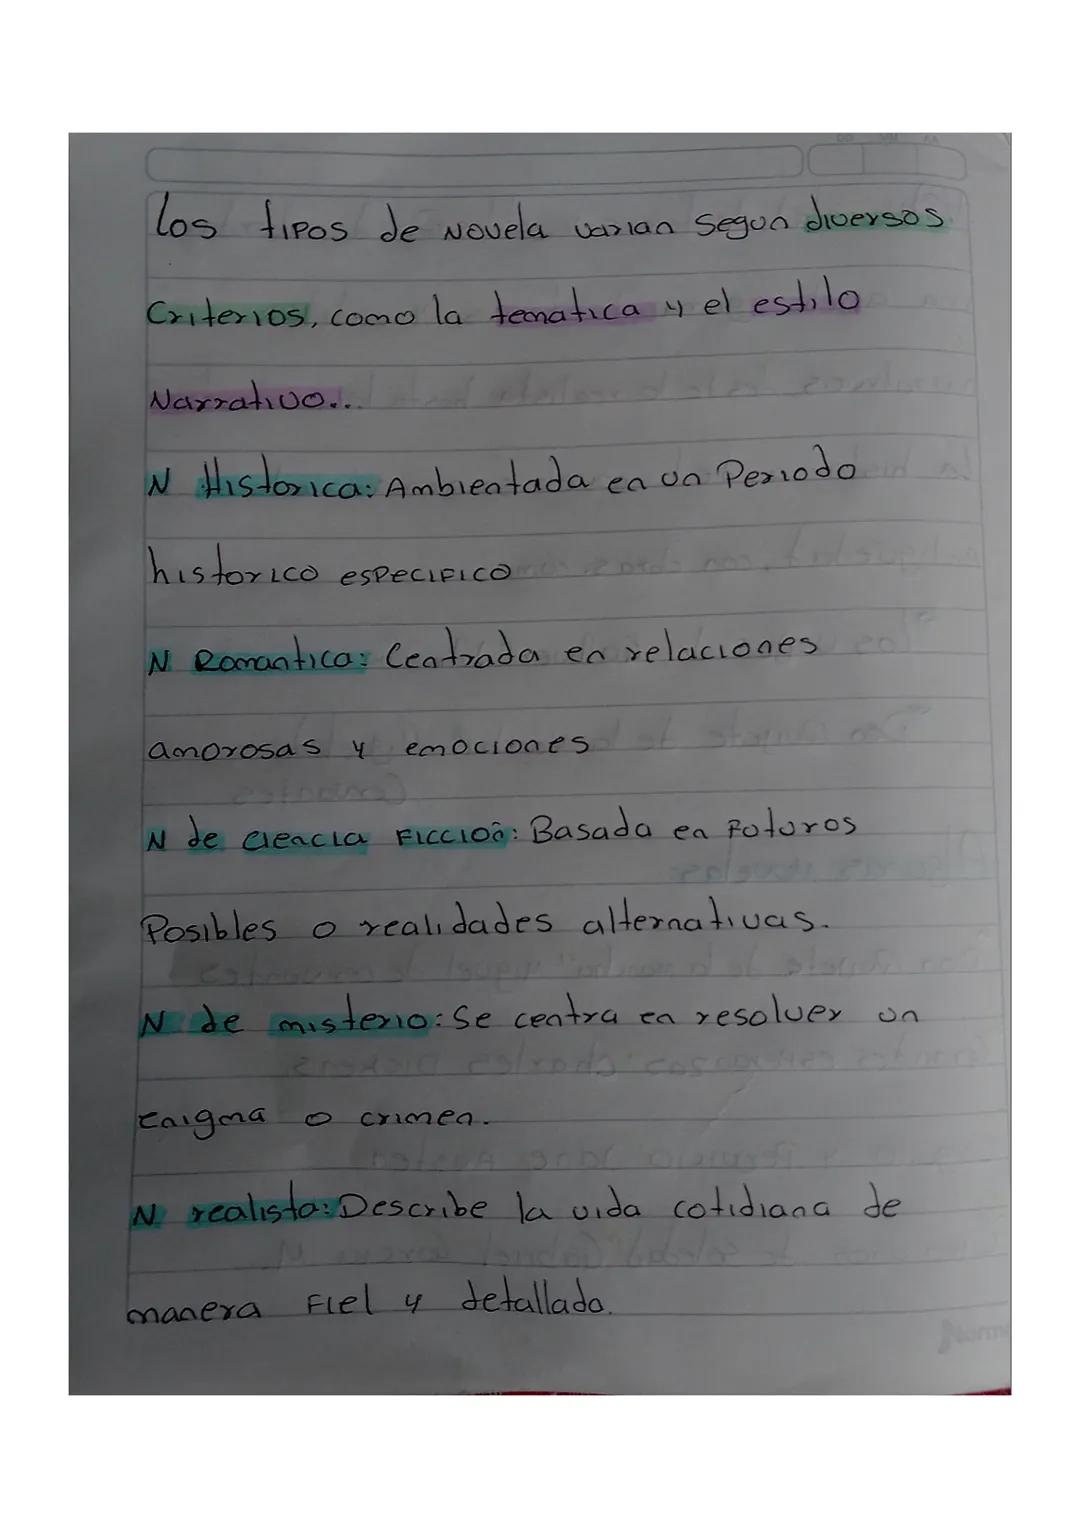 Los tipos de Novela varian Segun diversos
Criterios, como la tematica y el estilo
Narrativo...
N Historica: Ambientada en un Periodo
historico especifico
N Romantica: Centrada en relaciones
amorosas y emociones
N de ciencia Ficcion: Basada en Futuros
Posibles o realidades alternativas.
N de misterio: Se centra en resolver un
enigma o crimen.
N realista: Describe la vida cotidiana de
manera Fiel y detallada.
Norma